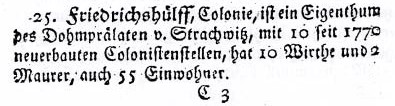 25. Friedrichshülff, Colonie, ist ein Eigenthum
des Dohmprälaten v. Strachwitz, mit 10 seit 1770
neuerbauten Colonistenstellen, hat 10 Wirthe und 2
Maurer, auch 55 Einwohner.
C 3